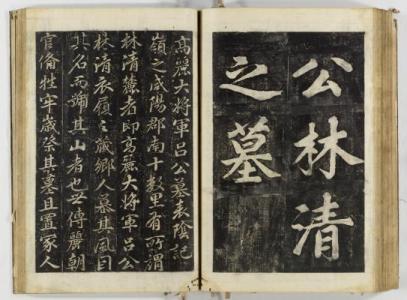 公林清
之墓
高麗大將軍呂公墓表陰記
嶺之咸陽郡南十數里有所謂
林清藪者即高麗大將軍呂公
林清衣履之藏鄉人慕其風因
其名而號其山者也世傳麗朝
官俻牲牢歲祭其墓且置冢人